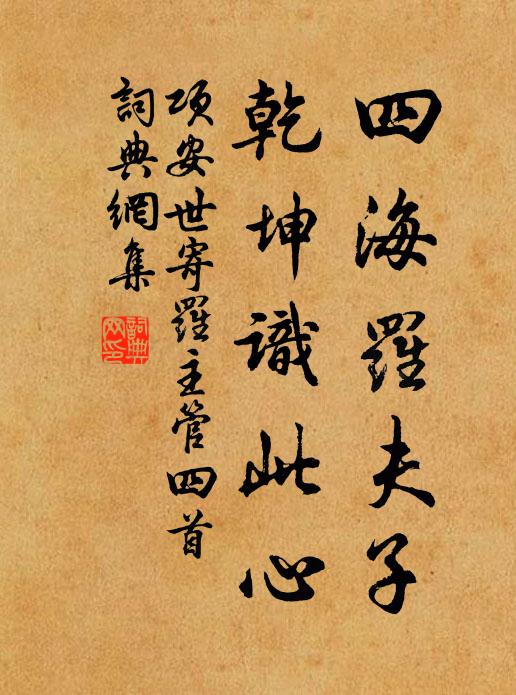 四海羅夫子
乾坤識此心
項安世寄羅主管四首
詞典網集
詞典网印